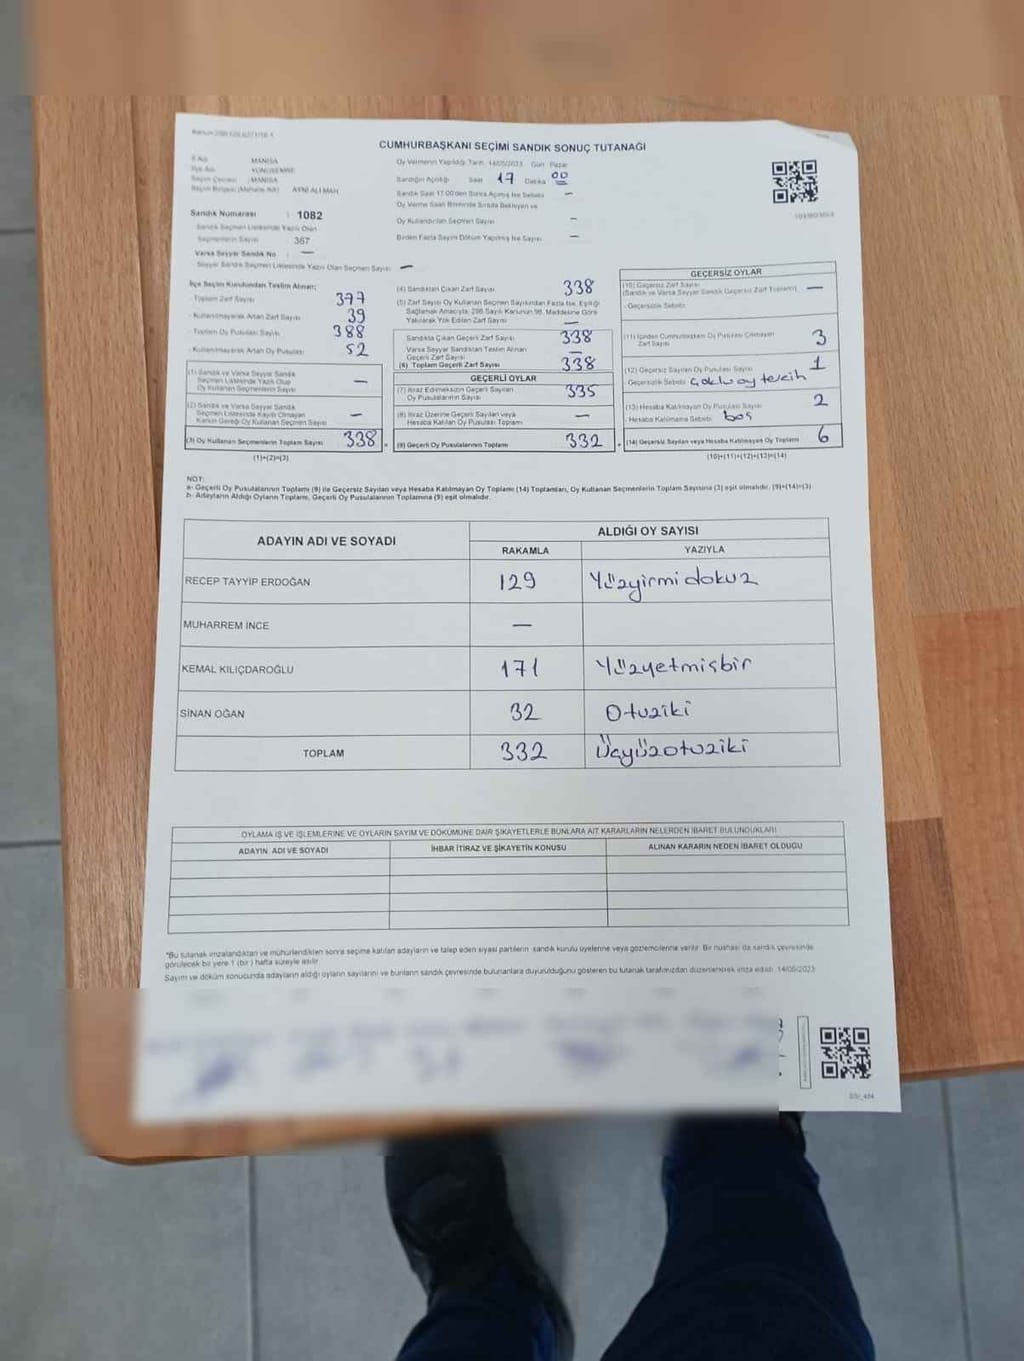 CUMHURBAŞKANI SEÇİMİ SANDIK SONUÇ TUTANAĞI
İl Adı MANİSA
İlçe Adı YUNUSEMRE
Seçim Çevresi : MANİSA
Seçim Bölgesi (Mahalle Adı) AYNİ ALİ MAH
Sandık Numarası : 1082
Sandık Seçmen Listesinde Yazılı Olan
Seçmenlerin Sayısı 367
Varsa Seyyar Sandık No : —
Seyyar Sandık Seçmen Listesinde Yazılı Olan Seçmen Sayısı —
Oy Vermenin Yapıldığı Tarih 14/05/2023 Gün Pazar
Sandığın Açıldığı Saat 17 Dakika 00
Sandık Saat 17.00'den Sonra Açılmış İse Sebebi —
Oy Verme Saati Bitiminde Sırada Bekleyen ve
Oy Kullandırılan Seçmen Sayısı —
Birden Fazla Sayım Döküm Yapılmış İse Sayısı —
İlçe Seçim Kurulundan Teslim Alınan;
- Toplam Zarf Sayısı 377
- Kullanılmayarak Artan Zarf Sayısı 39
- Toplam Oy Pusulası Sayısı 388
- Kullanılmayarak Artan Oy Pusulası 52
(1) Sandık ve Varsa Seyyar Sandık
Seçmen Listesinde Yazılı Olup
Oy Kullanan Seçmenlerin Sayısı —
(2) Sandık ve Varsa Seyyar Sandık
Seçmen Listesinde Kayıtlı Olmayan
Kanun Gereği Oy Kullanan Seçmen Sayısı —
(3) Oy Kullanan Seçmenlerin Toplam Sayısı 338
(1)+(2)=(3)
(4) Sandıktan Çıkan Zarf Sayısı 338
(5) Zarf Sayısı Oy Kullanan Seçmen Sayısından Fazla İse, Eşitliği
Sağlamak Amacıyla 298 Sayılı Kanunun 98. Maddesine Göre
Yakılarak Yok Edilen Zarf Sayısı —
Sandıkta Çıkan Geçerli Zarf Sayısı 338
Varsa Seyyar Sandıktan Teslim Alınan
Geçerli Zarf Sayısı —
(6) Toplam Geçerli Zarf Sayısı 338
GEÇERLİ OYLAR
(7) İtiraz Edilmeksizin Geçerli Sayılan
Oy Pusulasının Sayısı 335
(8) İtiraz Üzerine Geçerli Sayılan veya
Hesaba Katılan Oy Pusulası Toplamı —
(9) Geçerli Oy Pusulalarının Toplamı 332
GEÇERSİZ OYLAR
(10) Geçersiz Zarf Sayısı
(Sandık ve Varsa Seyyar Sandık Geçersiz Zarf Toplamı) —
- Geçersizlik Sebebi
(11) İçinden Cumhurbaşkanı Oy Pusulası Çıkmayan
Zarf Sayısı 3
(12) Geçersiz Sayılan Oy Pusulası Sayısı 1
- Geçersizlik Sebebi çoklu oy tercih
(13) Hesaba Katılmayan Oy Pusulası Sayısı 2
- Hesaba Katılmama Sebebi boş
(14) Geçersiz Sayılan veya Hesaba Katılmayan Oy Toplamı 6
(10)+(11)+(12)+(13)=(14)
NOT:
a- Geçerli Oy Pusulalarının Toplamı (9) ile Geçersiz Sayılan veya Hesaba Katılmayan Oy Toplamı (14) Toplamları, Oy Kullanan Seçmenlerin Toplam Sayısına (3) eşit olmalıdır. (9)+(14)=(3)
b- Adayların Aldığı Oyların Toplamı, Geçerli Oy Pusulalarının Toplamına (9) eşit olmalıdır.
ADAYIN ADI VE SOYADI ALDIĞI OY SAYISI
RAKAMLA YAZIYLA
RECEP TAYYİP ERDOĞAN 129 Yüzyirmidokuz
MUHARREM İNCE —
KEMAL KILIÇDAROĞLU 171 Yüzyetmişbir
SİNAN OĞAN 32 Otuziki
TOPLAM 332 Üçyüzotuziki
OYLAMA İŞ VE İŞLEMLERİNE VE OYLARIN SAYIM VE DÖKÜMÜNE DAİR ŞİKAYETLERLE BUNLARA AİT KARARLARIN NELERDEN İBARET BULUNDUKLARI
ADAYIN ADI VE SOYADI İHBAR İTİRAZ VE ŞİKAYETİN KONUSU ALINAN KARARIN NEDEN İBARET OLDUĞU
*Bu tutanak imzalandıktan ve mühürlendikten sonra seçime katılan adayların ve talep eden siyasi partilerin sandık kurulu üyelerine veya gözlemcilerine verilir. Bir nüshası da sandık çevresinde
görülecek bir yere 1 (bir) hafta süreyle asılır.
Sayım ve döküm sonucunda adayların aldığı oyların sayılarını ve bunların sandık çevresinde bulunanlara duyurulduğunu gösteren bu tutanak tarafımızdan düzenlenerek imza edildi. 14/05/2023